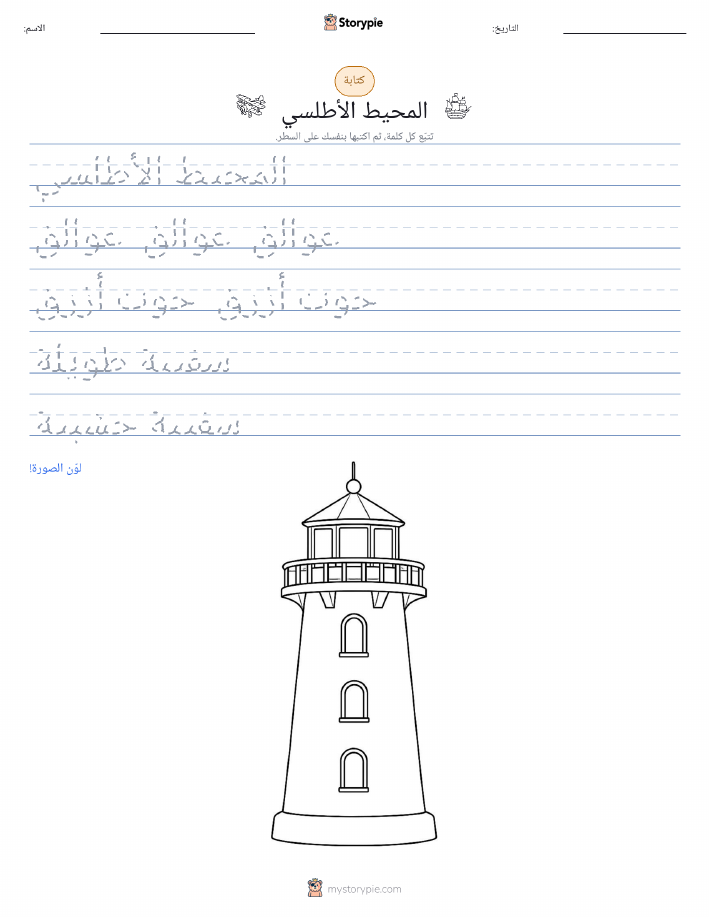 Storypie
الاسم:
التاريخ:
كتابة
المحيط الأطلسي
تتبّع كل كلمة، ثم اكتبها بنفسك على السطر.
المحيط الأطلسي
عوالق عوالق عوالق
حوت أزرق حوت أزرق
سفينة طويلة
سفينة خشبية
لوّن الصورة!
mystorypie.com